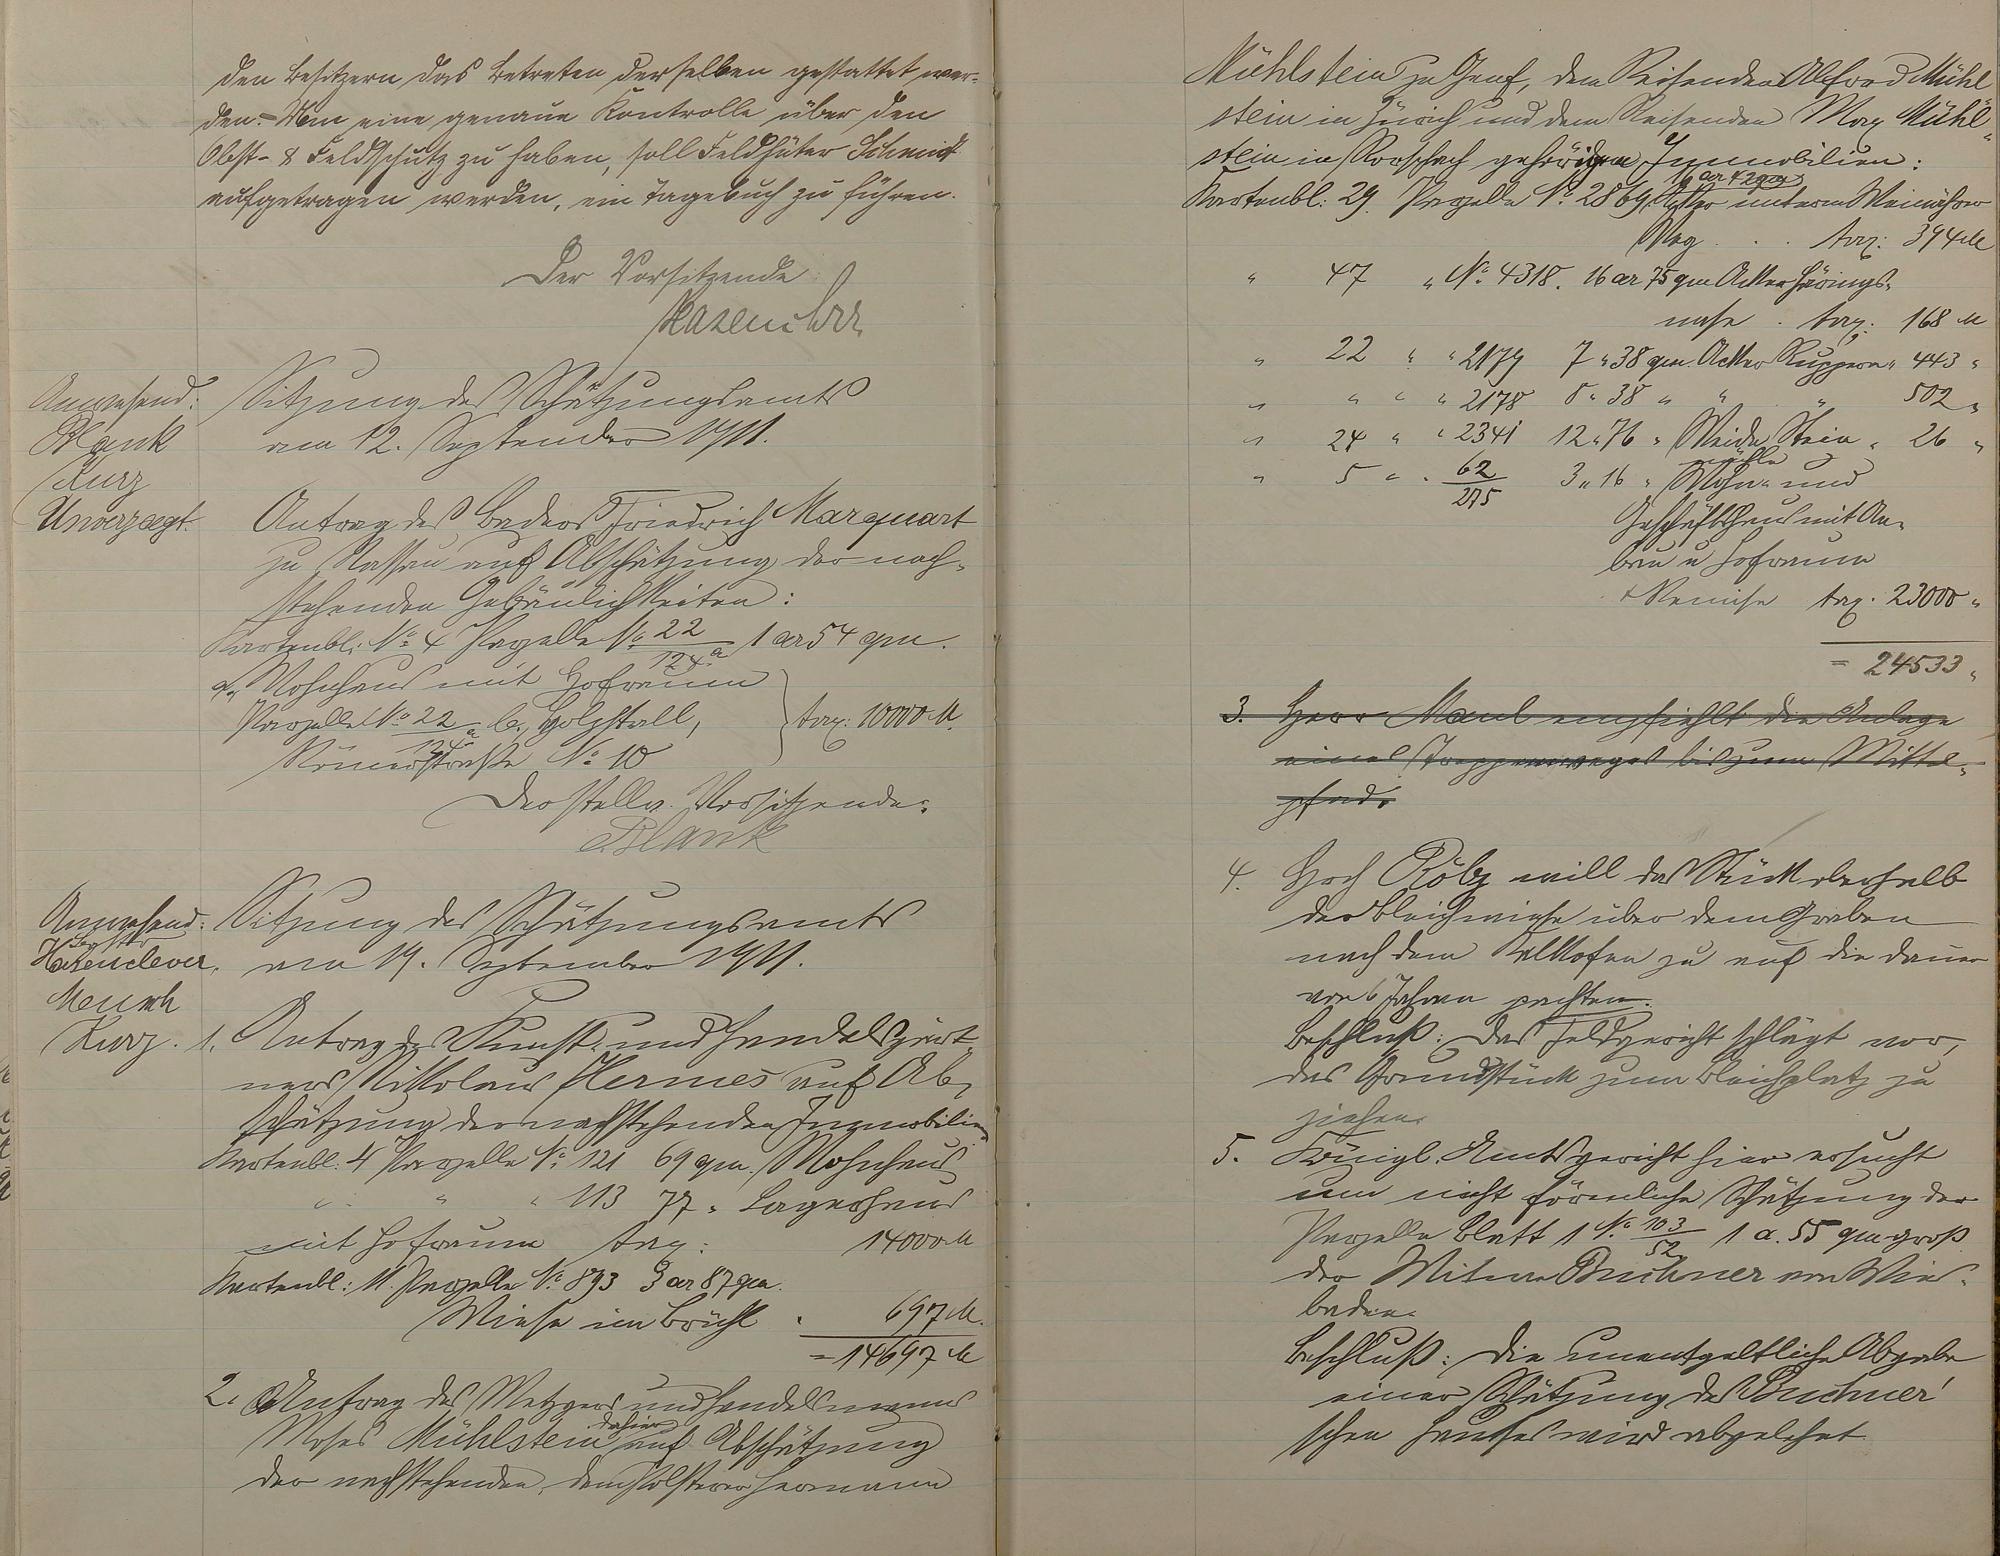 den Besitzern das Betreten derselben gestattet wer-
den. Um eine genaue Kontrolle über den
Obst- & Feldschutz zu haben, soll Feldhüter Schmidt
aufgetragen werden, ein Tagebuch zu führen.
Der Vorsitzende
Anwesend:
Blank
Kurz
Unverzagt.
Sitzung des Schätzungsamts
am 12. September 1911.
Antrag des Baders Friedrich Marquart
zu Nassau auf Abschätzung der nach-
stehenden Gebäulichkeiten:
Kartenbl. No 4 Parzelle No 22/124 a 1 ar 54 qm.
a, Wohnhaus mit Hofraum
Parzelle No 22/124 a b, Holzstall,
tax: 10000 M.
Römerstraße No 10
Der stellv. Vorsitzende:
Blank
Anwesend:
Hasenclever,
Meusch
Kurz.
Sitzung des Schätzungsamts
am 19. September 1911.
1. Antrag des Kunst- und Handelsgärt-
ners Nikolaus Hermes auf Ab-
schätzung der nachstehenden Immobilien
Kartenbl. 4 Parzelle No 121 69 qm. Wohnhaus
" " " 113 77 " Lagerhaus
mit Hofraum tax: 14000 M
Kartenbl: 11. Parzelle No 893 3 ar 87 qm.
Wiese im Brühl " 697 M.
= 14697 M
2. Antrag des Metzgers und Handelsmanns
Moses Mühlstein dahier auf Abschätzung
der nachstehenden, dem Polsterer Hermann
Mühlstein zu Genf, dem Reisenden Alfred Mühl
stein in Zürich und dem Reisenden Max Mühl-
stein in Rorschach gehörigen Immobilien:
16 ar 42 qm
Kartenbl: 29. Parzelle No 2869 Acker unterm Weinährer
Weg . . tax: 394 M
" 47 " No 4318. 16 ar 75 qm Acker Härings-
nase . tax: 168 M
" 22 " " 2179 7 " 38 qm. Acker Ruppern " 443 "
" " " " 2178 8 " 38 " " " 502 "
" 24 " " 2341 12 " 76 " Weide Stein " 26 "
mühle
" 5 " " 62/275 3 " 16 " Wohn- und
Geschäftshaus mit An-
bau u Hofraum
+ Remise tax. 23000 "
= 24533 "
3. Herr Maul empfiehlt die Anlage
eines Treppenweges bis zum Mittel-
pfad.
4. Hch Pölz will das Stück oberhalb
der Bleichwiese über dem Graben
nach dem Kalkofen zu auf die Dauer
von 6 Jahren pachten.
Beschluß: Das Feldgericht schlägt vor,
das Grundstück zum Bleichplatz zu
ziehen.
5. Königl. Amtsgericht hier ersucht
um nicht förmliche Schätzung der
Parzelle Blatt 1 No. 103/52 1 a. 55 qm groß
der Witwe Buchner von Wies-
baden.
Beschluß: Die unentgeltliche Abgabe
einer Schätzung des Buchner'
schen Hauses wird abgelehnt